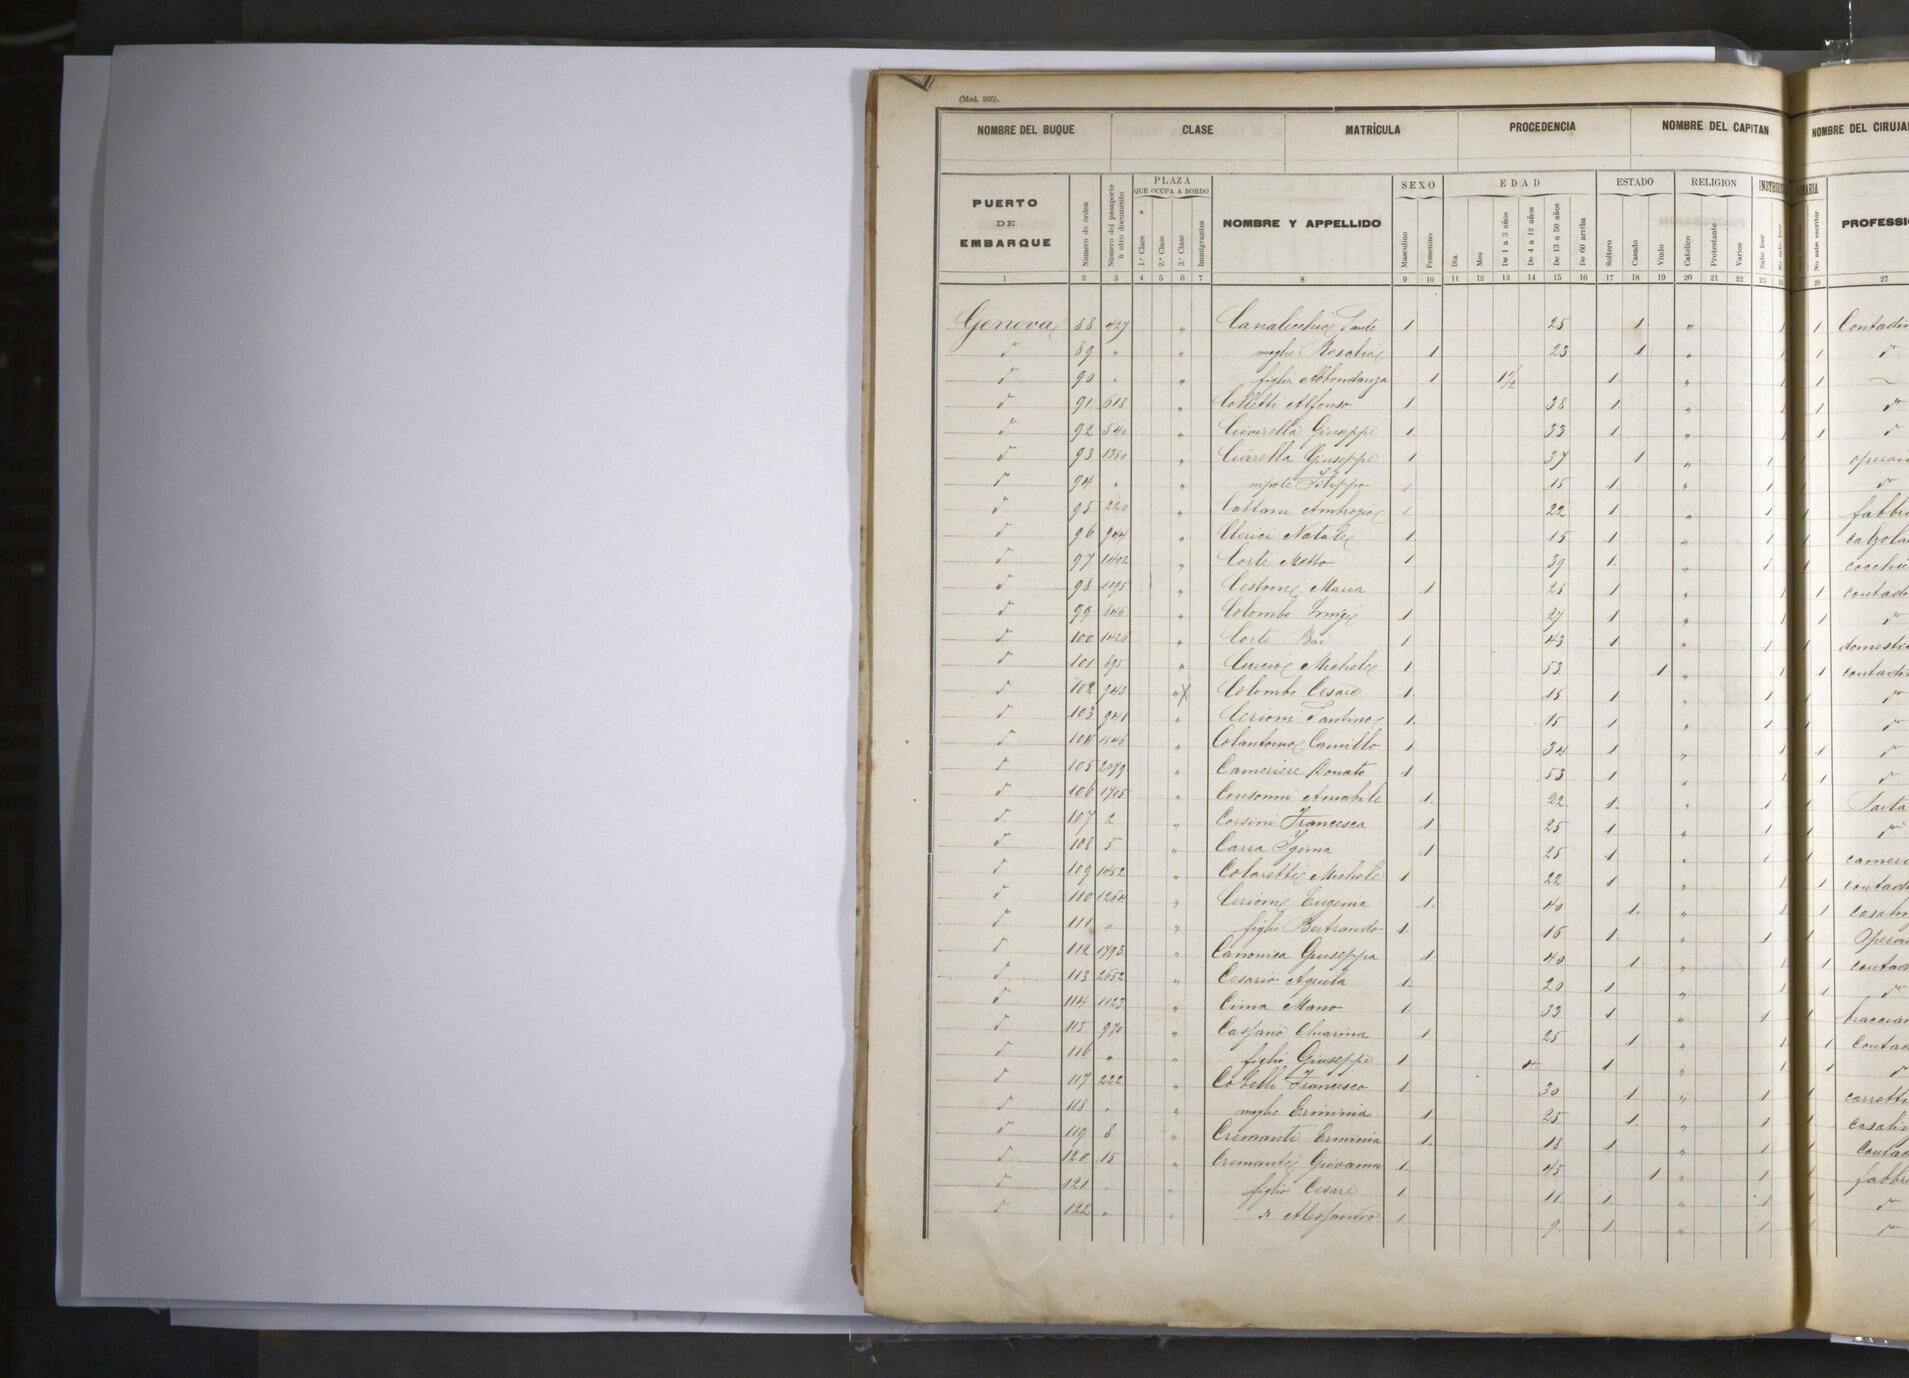 (Mod. 205).
NOMBRE DEL BUQUE CLASE MATRÍCULA PROCEDENCIA NOMBRE DEL CAPITAN NOMBRE DEL CIRUJA
PUERTO DE EMBARQUE Número de órden Número del pasaporte ú otro documento PLAZA QUE OCUPA A BORDO 1.ª Clase 2.ª Clase 3.ª Clase Immigrantes NOMBRE Y APPELLIDO SEXO Masculino Femenino EDAD Dia Mes De 1 a 3 años De 4 a 12 años De 13 a 59 años De 60 arriba ESTADO Soltero Casado Viudo RELIGION Católico Protestante Varios Sabe leer No sabe escribir PROFESSI
1 2 3 4 5 6 7 8 9 10 11 12 13 14 15 16 17 18 19 20 21 22 23 24 26 27
Genova 88 427 " Canalicchio Sante 1 25 1 " 1 1 Contadin
d° 89 " " moglie Rosalia 1 23 1 " 1 1 d°
d° 90 " " figlia Abbondanza 1 1 1/2 1 " 1 1
d° 91 618 " Colletti Alfonso 1 38 1 " 1 1 d°
d° 92 540 " Giuseppe 1 33 1 " 1 1 d°
d° 93 1380 " Ciarella Giuseppe 1 37 1 " 1 1 operai
d° 94 " " nipote Filippo 1 15 1 " 1 1 d°
d° 95 220 " Cattani Ambrogio 1 22 1 " 1 1 fabbr
d° 96 944 " Clerici Natale 1 15 1 " 1 1 calzola
d° 97 1402 " Corte 1 39 1 " 1 1 cocchie
d° 98 1195 " Maria 1 25 1 " 1 1 contad
d° 99 846 " Colombo Luigi 1 27 1 " 1 1 d°
d° 100 1426 " Corti 1 43 1 " 1 1 domesti
d° 101 895 " Curcio Michele 1 53 1 " 1 1 contadi
d° 102 943 " X Colombo Cesare 1 15 1 " 1 1 d°
d° 103 941 " Cerioni Santino 1 15 1 " 1 1 d°
d° 104 1546 " Colantonio Camillo 1 34 1 " 1 1 d°
d° 105 2079 " Cameriere Donato 1 53 1 " 1 1 d°
d° 106 1705 " Consonni Amabile 1 22 1 " 1 1 Sarta
d° 107 2 " Corsini Francesca 1 25 1 " 1 1 d°
d° 108 5 " Carra Igina 1 25 1 " 1 1 cameri
d° 109 1452 " Colaretti Michele 1 22 1 " 1 1 contad
d° 110 1264 " Cerioni Eugenia 1 40 1 " 1 1 casalin
d° 111 " " figlio Bertrando 1 16 1 " 1 1 Opera
d° 112 1793 " Canonica Giuseppa 1 40 1 " 1 1 contad
d° 113 2652 " Cesario Aquila 1 20 1 " 1 1 d°
d° 114 1123 " Cima Mano 1 33 1 " 1 1 braccian
d° 115 970 " Cassano Chiarina 1 25 1 " 1 1 Contad
d° 116 " " figlio Giuseppe 1 4 1 " 1 1 d°
d° 117 222 " Cobelli Francesco 1 30 1 " 1 1 carretti
d° 118 " " moglie Erminia 1 25 1 " 1 1 casalin
d° 119 8 " Cremanti Erminia 1 18 1 " 1 1 Contad
d° 120 15 " Cremanti Giovanni 1 45 1 " 1 1 fabbr
d° 121 " " figlio Cesare 1 11 1 " 1 1 d°
d° 122 " " d° Alessandro 1 9 1 " 1 1 d°